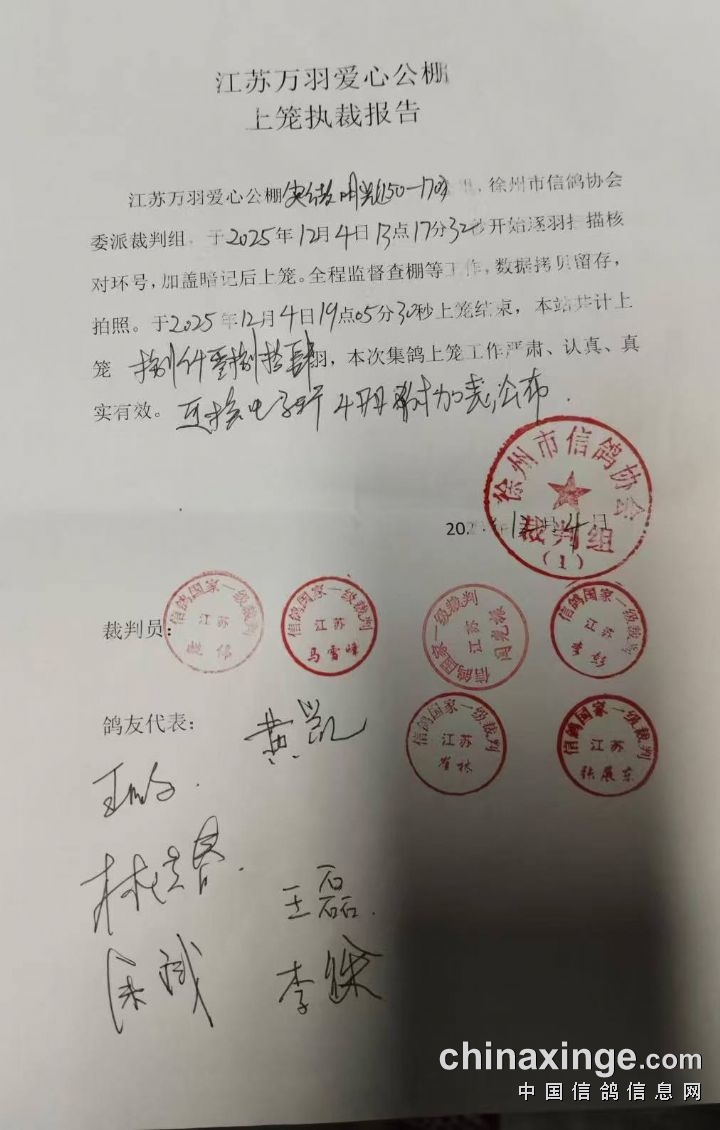 江苏万羽爱心公棚
上笼执裁报告
江苏万羽爱心公棚 徐州市信鸽协会
委派裁判组，于2025年12月4日13点17分32秒开始逐羽扫描核
对环号，加盖暗记后上笼。全程监督查棚等工作，数据拷贝留存，
拍照。于2025年12月4日19点05分30秒上笼结束，本站共计上
笼 捌仟零捌拾肆羽，本次集鸽上笼工作严肃、认真、真
实有效。
徐州市信鸽协会
裁判组
（1）
20 年12月4日
裁判员：
信鸽国家一级裁判
江苏
信鸽国家一级裁判
江苏
马雪峰
信鸽国家一级裁判
江苏
信鸽国家一级裁判
江苏
李彭
鸽友代表：
黄凯
信鸽国家一级裁判
江苏
信鸽国家一级裁判
江苏
张展东
王磊
余斌
李
chinaxinge.com
中国信鸽信息网